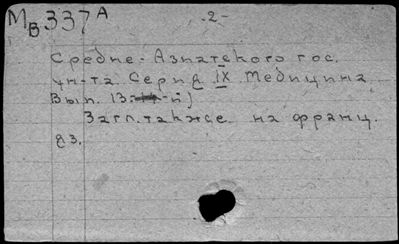 Мв 337А -2-
Средне-Азиатского гос.
ун-та Серия IX Медицина
Вып. 13-й)
Загл. также на франц.
яз.